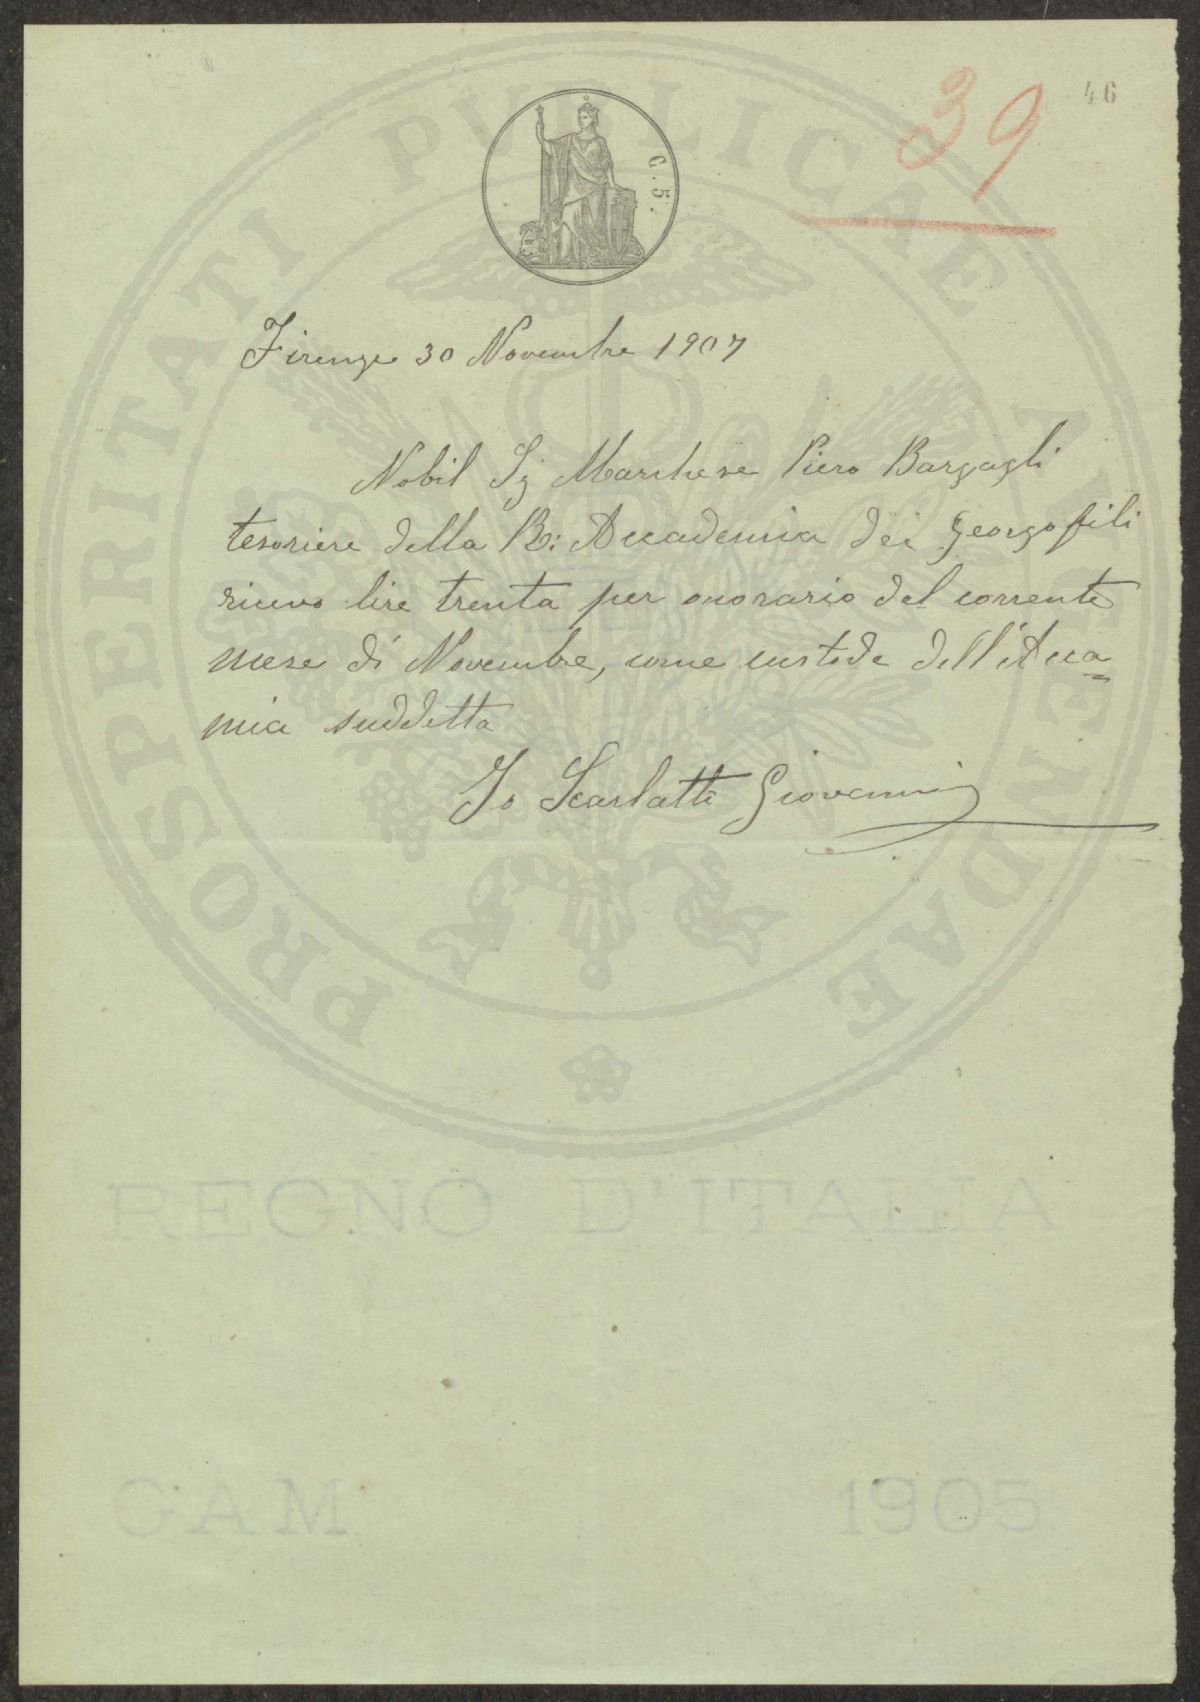 46
39
C. 5.
PROSPERITATI PVBLICAE AVGENDAE
Firenze 30 Novembre 1907
Nobil Sig Marchese Piero Bargagli
tesoriere della R: Accademia dei Georgofili
ricevo lire trenta per onorario del corrente
mese di Novembre, come custode dell'Acca
mia suddetta
Io Scarlatti Giovanni
REGNO D'ITALIA
GAM 1905